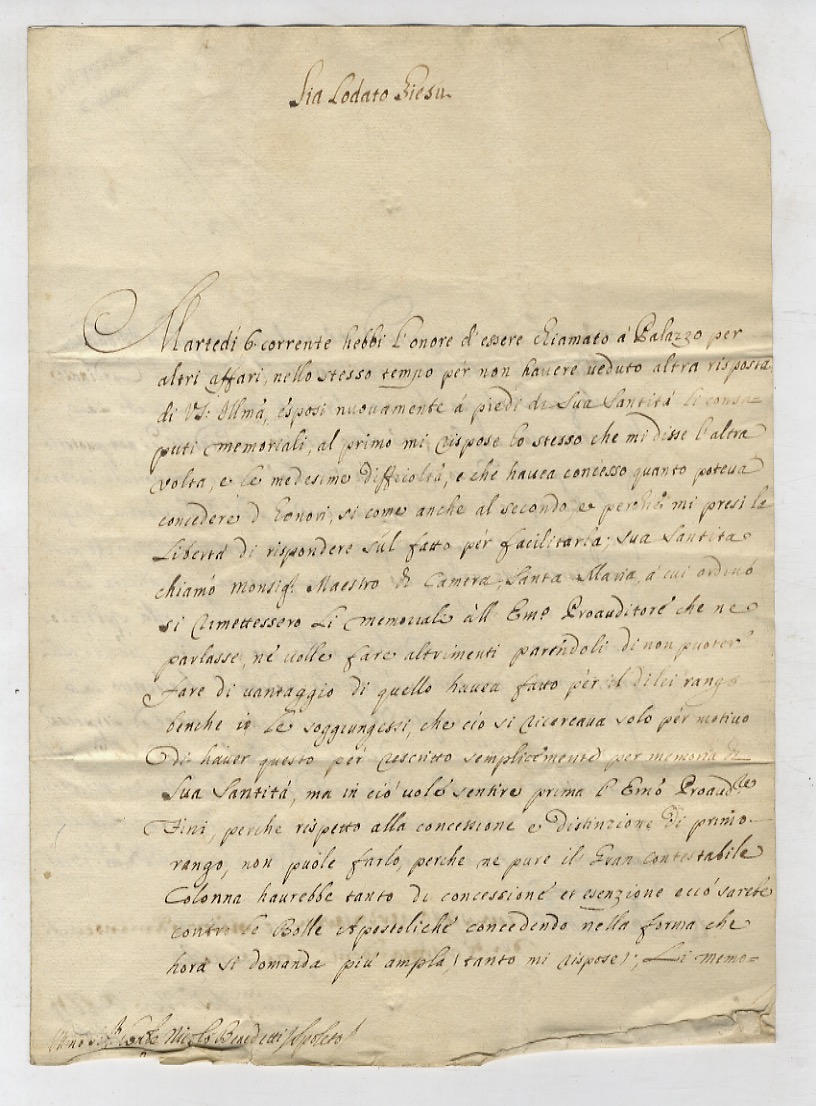 Sia Lodato Giesu
Martedí 6. corrente hebbi l'onore d'essere chiamato á Palazzo per
altri affari, nello stesso tempo pér non havere veduto altra risposta
di VS: Illmá, ésposi nuovamente á piedi di Sua Santitá li consa=
puti memoriali, al primo mi rispose lo stesso che mi disse l'altra
volta, e le medesime difficoltá, e che havea concesso quanto poteva
concedere d'honori, si come anche al secondo, e perche mi presi la
Libertá di rispondere sul fatto pér facilitarla; sua Santitá
chiamó Monsigr. Maestro di Camera Santa Maria, á cui ordinó
si rimettessero li memoriali all' Emo. Proauditoré che ne
parlasse, né volle fare altrimenti paréndoli di non puoter
fare di vantaggio di quello havea fatto pér il di lei rango
benche io le soggiungessi, che ció si ricercava solo pér motivo
di haver questo pér rescritto semplicemente per memoria di
Sua Santitá, ma in ció volé sentire prima l'Emo Proaud.re
Fini, perche rispetto alla concessione e distinzione di primo
rango, non puole farlo, perche ne pure il Gran Contestabile
Colonna haurebbe tanto di concessioné et esenzione e ció sarebe
contro le Bolle Apostoliché concedendo nella forma che
hora si domanda piú ampla (tanto mi rispose); Li memo=
Conte Nicolo Benedetti Spoleto